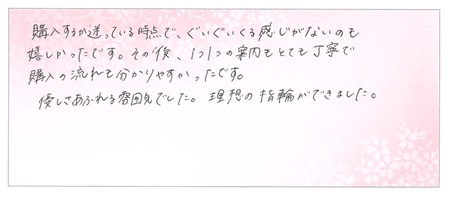 購入するか迷っている時点で、ぐいぐいくる感じがないのも
嬉しかったです。その後、1つ1つの案内もとても丁寧で
購入の流れも分かりやすかったです。
優しさあふれる雰囲気でした。理想の指輪ができました。